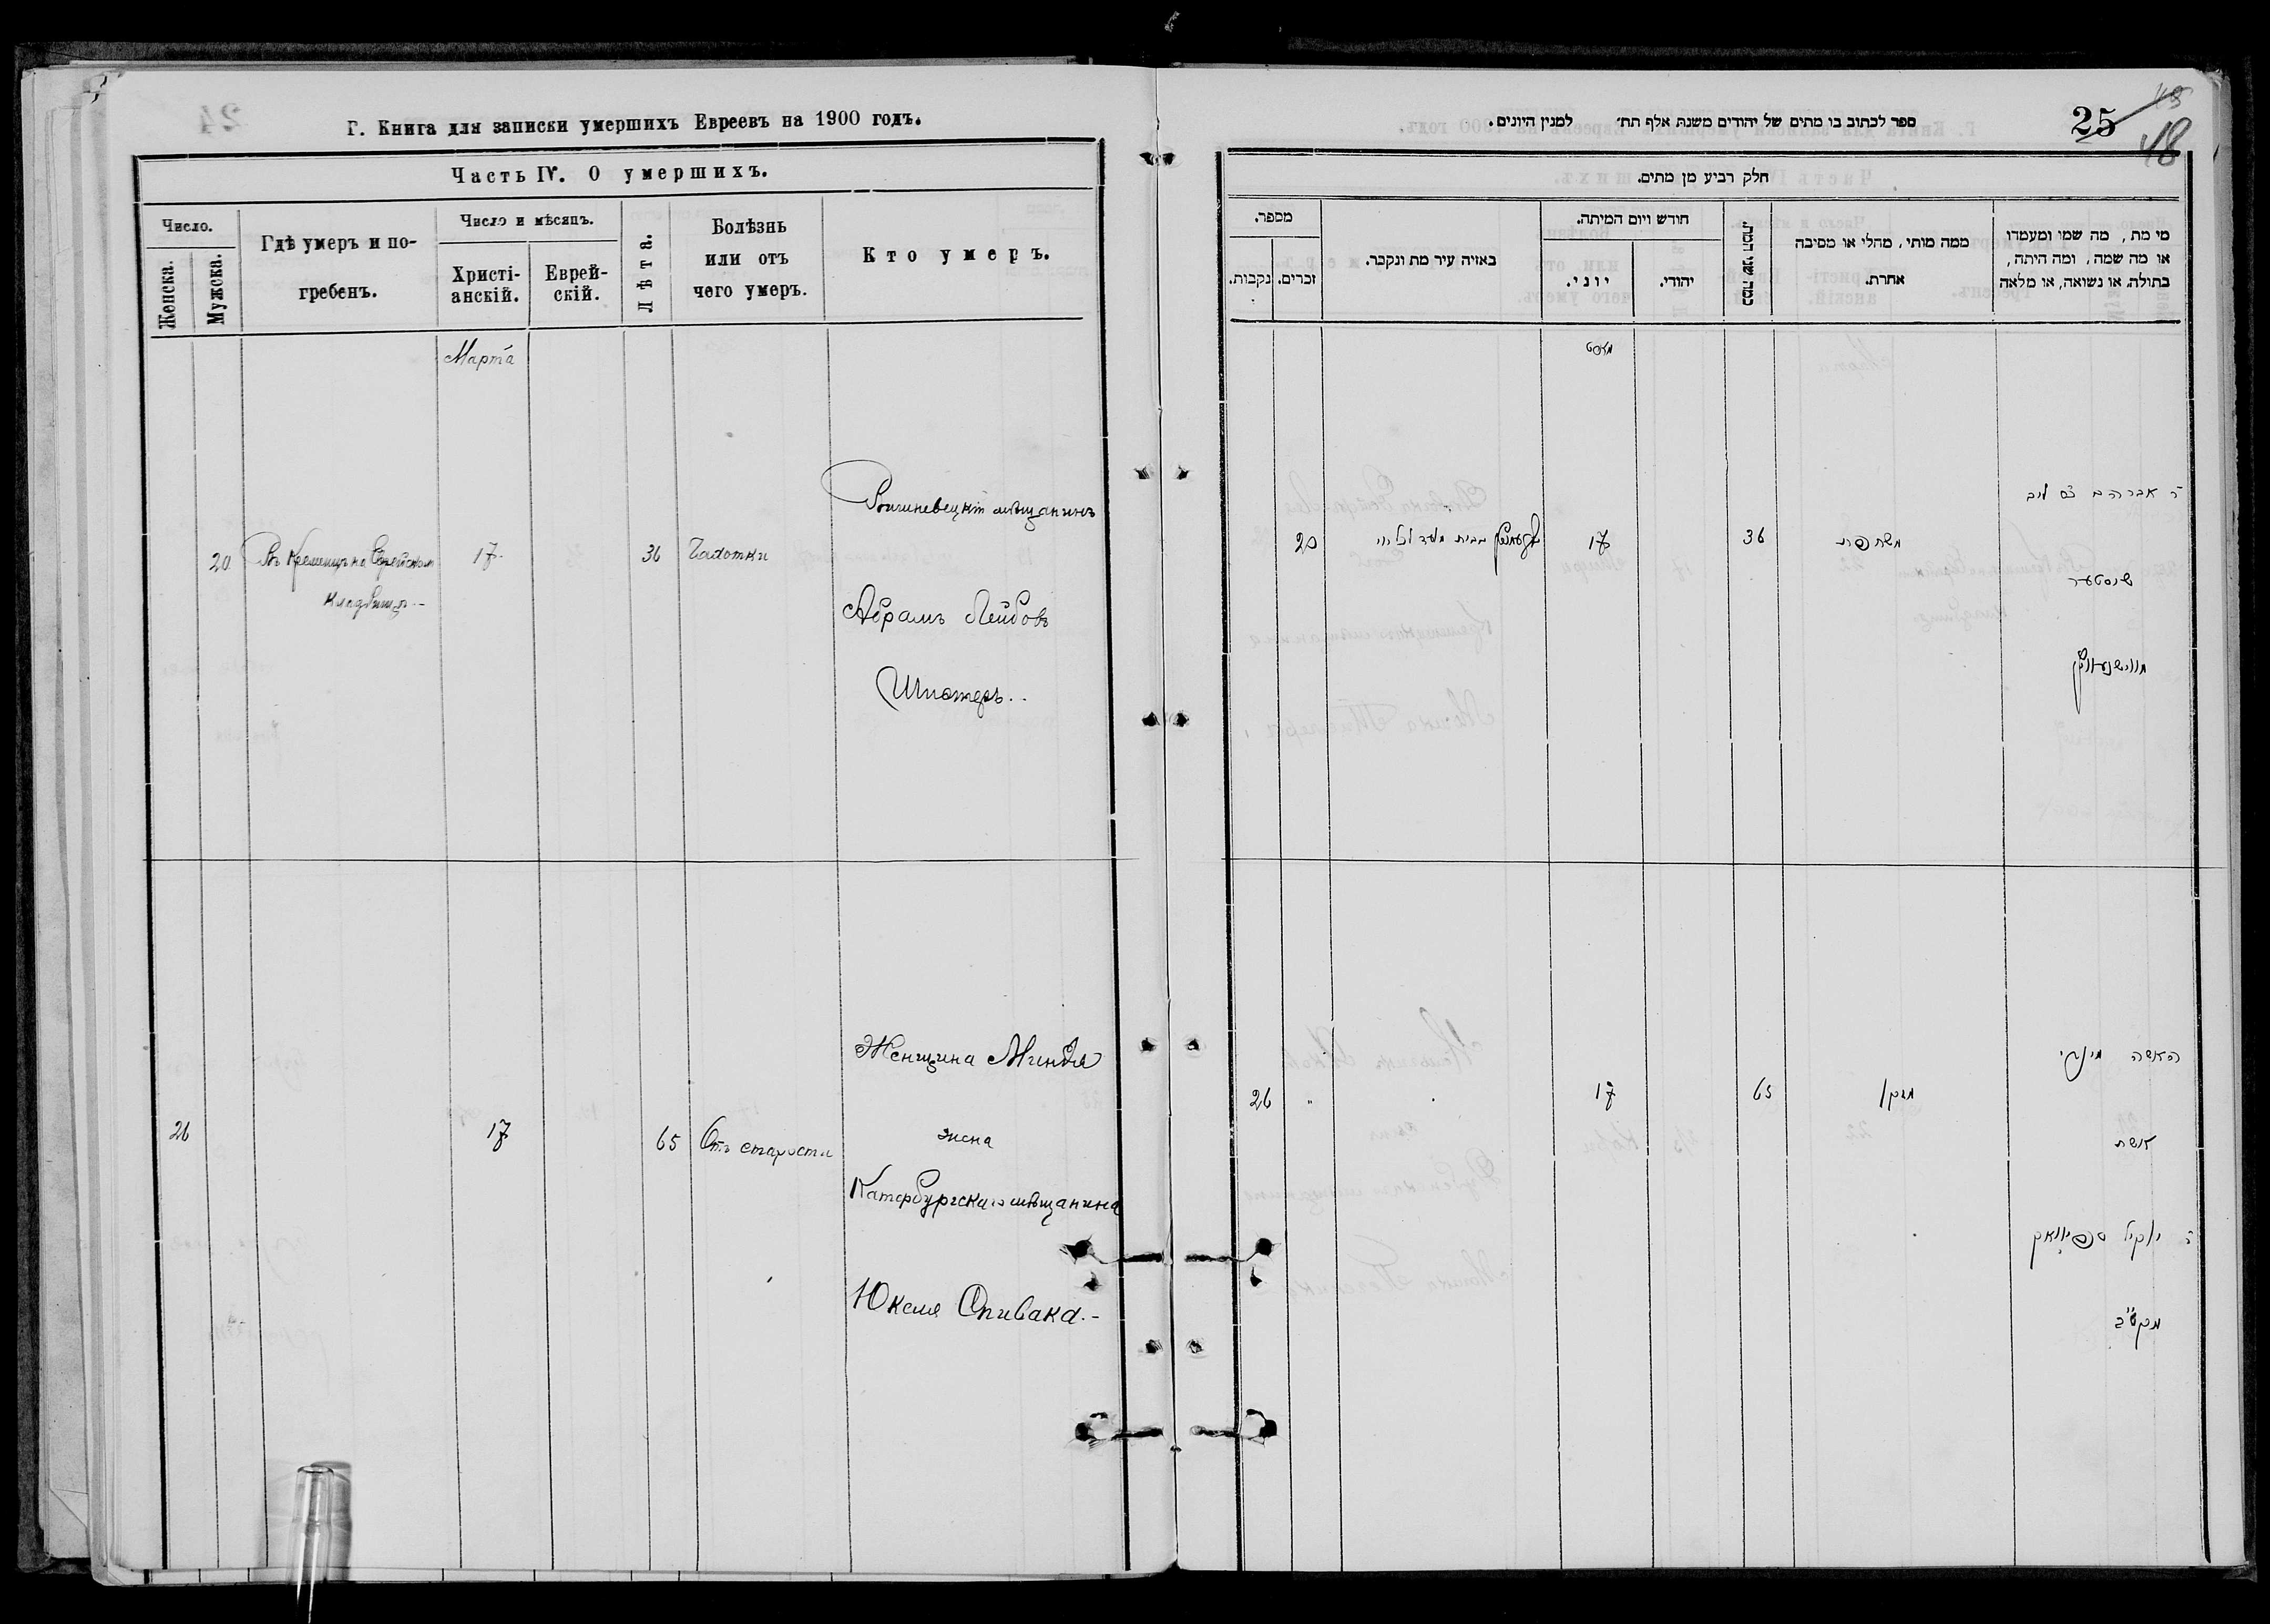 Г. Книга для записки умершихъ Евреевъ на 1900 годъ.
Часть IV. О умершихъ.
Число.
Женска.
Мужска.
Гдѣ умеръ и по-
гребенъ.
Число и мѣсяцъ.
Христі-
анскій.
Еврей-
скій.
Лѣта.
Болѣзнь
или отъ
чего умеръ.
Кто умеръ.
Марта
20
Въ Кременцѣ на Еврейском
кладбищѣ
17
36
Чахотки
Вишневецкій мѣщанинъ
Абрамъ Лейбовъ
26
17
65
Отъ старости
Женщина Миндля
жена
Катербургскаго мѣщанина
Юкеля Спивака.
ספר לכתוב בו מתים של יהודים משנת אלף תת׳ למנין היונים.
25
48
חלק רביע מן מתים.
מספר.
נקבות.
זכרים.
באזיה עיר מת ונקבר.
חודש ויום המיתה.
יוני.
יהודי.
כמה שני המת.
ממה מותי, מחלי או מסיבה
אחרת.
מי מת, מה שמו ומעמדו
או מה שמה, ומה היתה,
בתולה, או נשואה, או מלאה
מארט
20
17
36
ר אברהם
26
"
17
65
מזקן
האשה מינדל
אשת
ר יוקיל ספיוואק